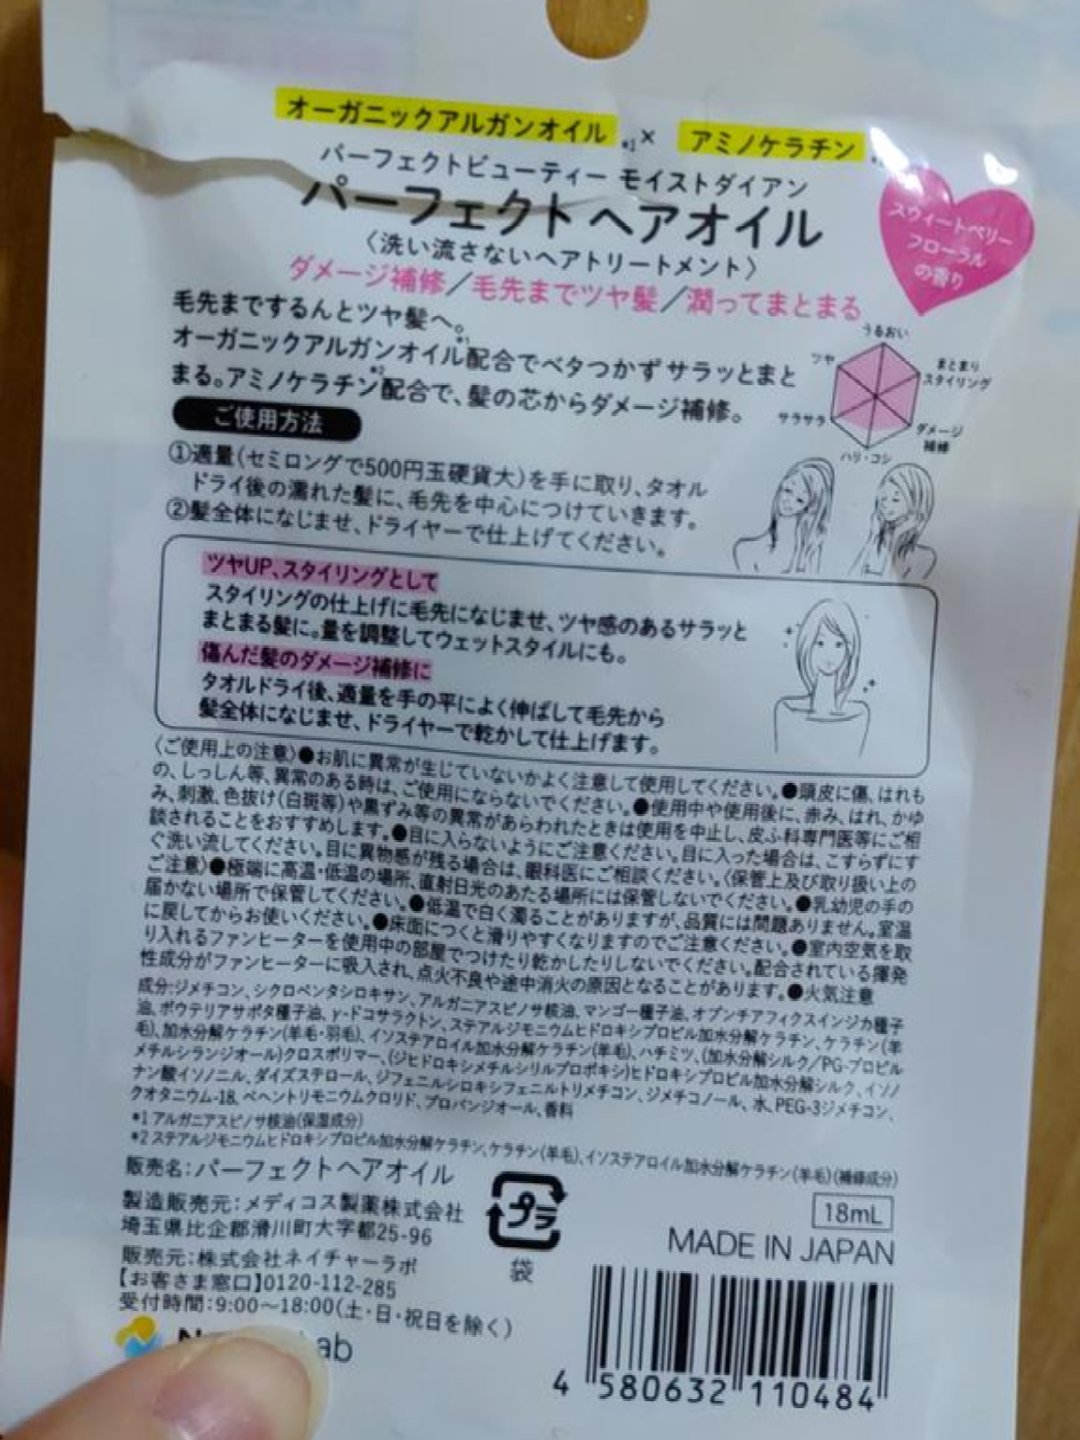 オーガニックアルガンオイル*1 × アミノケラチン
パーフェクトビューティー モイストダイアン
パーフェクト ヘアオイル
〈洗い流さないヘアトリートメント〉
ダメージ補修／毛先までツヤ髪／潤ってまとまる
スウィートベリー
フローラル
の香り
毛先までするんとツヤ髪へ。
オーガニックアルガンオイル*1配合でベタつかず サラッとまと
まる。アミノケラチン*2配合で、髪の芯からダメージ補修。
うるおい
まとまり
スタイリング
ダメージ
補修
ハリ・コシ
サラサラ
ツヤ
ご使用方法
①適量(セミロングで500円玉硬貨大)を手に取り、タオル
ドライ後の濡れた髪に、毛先を中心につけていきます。
②髪全体になじませ、ドライヤーで仕上げてください。
ツヤUP、スタイリングとして
スタイリングの仕上げに毛先になじませ、ツヤ感のあるサラッと
まとまる髪に。量を調整してウェットスタイルにも。
傷んだ髪のダメージ補修に
タオルドライ後、適量を手の平によく伸ばして毛先から
髪全体になじませ、ドライヤーで乾かして仕上げます。
〈ご使用上の注意〉●お肌に異常が生じていないかよく注意して使用してください。●頭皮に傷、はれも
の、しっしん等、異常のある時は、ご使用にならないでください。●使用中や使用後に、赤み、はれ、かゆ
み、刺激、色抜け(白斑等)や黒ずみ等の異常があらわれたときは使用を中止し、皮ふ科専門医等にご相
談されることをおすすめします。●目に入らないようにご注意ください。目に入った場合は、こすらずにす
ぐ洗い流してください。目に異物感が残る場合は、眼科医にご相談ください。〈保管上及び取り扱い上の
ご注意〉●極端に高温・低温の場所、直射日光のあたる場所には保管しないでください。●乳幼児の手の
届かない場所で保管してください。●低温で白く濁ることがありますが、品質には問題ありません。室温
に戻してからお使いください。●床面につくと滑りやすくなりますのでご注意ください。●室内空気を取
り入れるファンヒーターを使用中の部屋でつけたり乾かしたりしないでください。配合されている揮発
性成分がファンヒーターに吸入され、点火不良や途中消火の原因となることがあります。●火気注意
成分:ジメチコン、シクロペンタシロキサン、アルガニアスピノサ核油、マンゴー種子油、オプンチアフィクスインジカ種子
油、ポウテリアサポタ種子油、γ-ドコサラクトン、ステアルジモニウムヒドロキシプロピル加水分解ケラチン、ケラチン(羊
毛)、加水分解ケラチン(羊毛・羽毛)、イソステアロイル加水分解ケラチン(羊毛)、ハチミツ、(加水分解シルク/PG-プロピル
メチルシランジオール)クロスポリマー、(ジヒドロキシメチルシリルプロポキシ)ヒドロキシプロピル加水分解シルク、イソノ
ナン酸イソノニル、ダイズステロール、ジフェニルシロキシフェニルトリメチコン、ジメチコノール、水、PEG-3ジメチコン、
クオタニウム-18、ベヘントリモニウムクロリド、プロパンジオール、香料
*1 アルガニアスピノサ核油(保湿成分)
*2 ステアルジモニウムヒドロキシプロピル加水分解ケラチン、ケラチン(羊毛)、イソステアロイル加水分解ケラチン(羊毛)(補修成分)
販売名:パーフェクトヘアオイル
製造販売元:メディコス製薬株式会社
埼玉県比企郡滑川町大字都25-96
販売元:株式会社ネイチャーラボ
【お客さま窓口】0120-112-285
受付時間:9:00～18:00(土・日・祝日を除く)
プラ
袋
18mL
MADE IN JAPAN
4 580632 110484